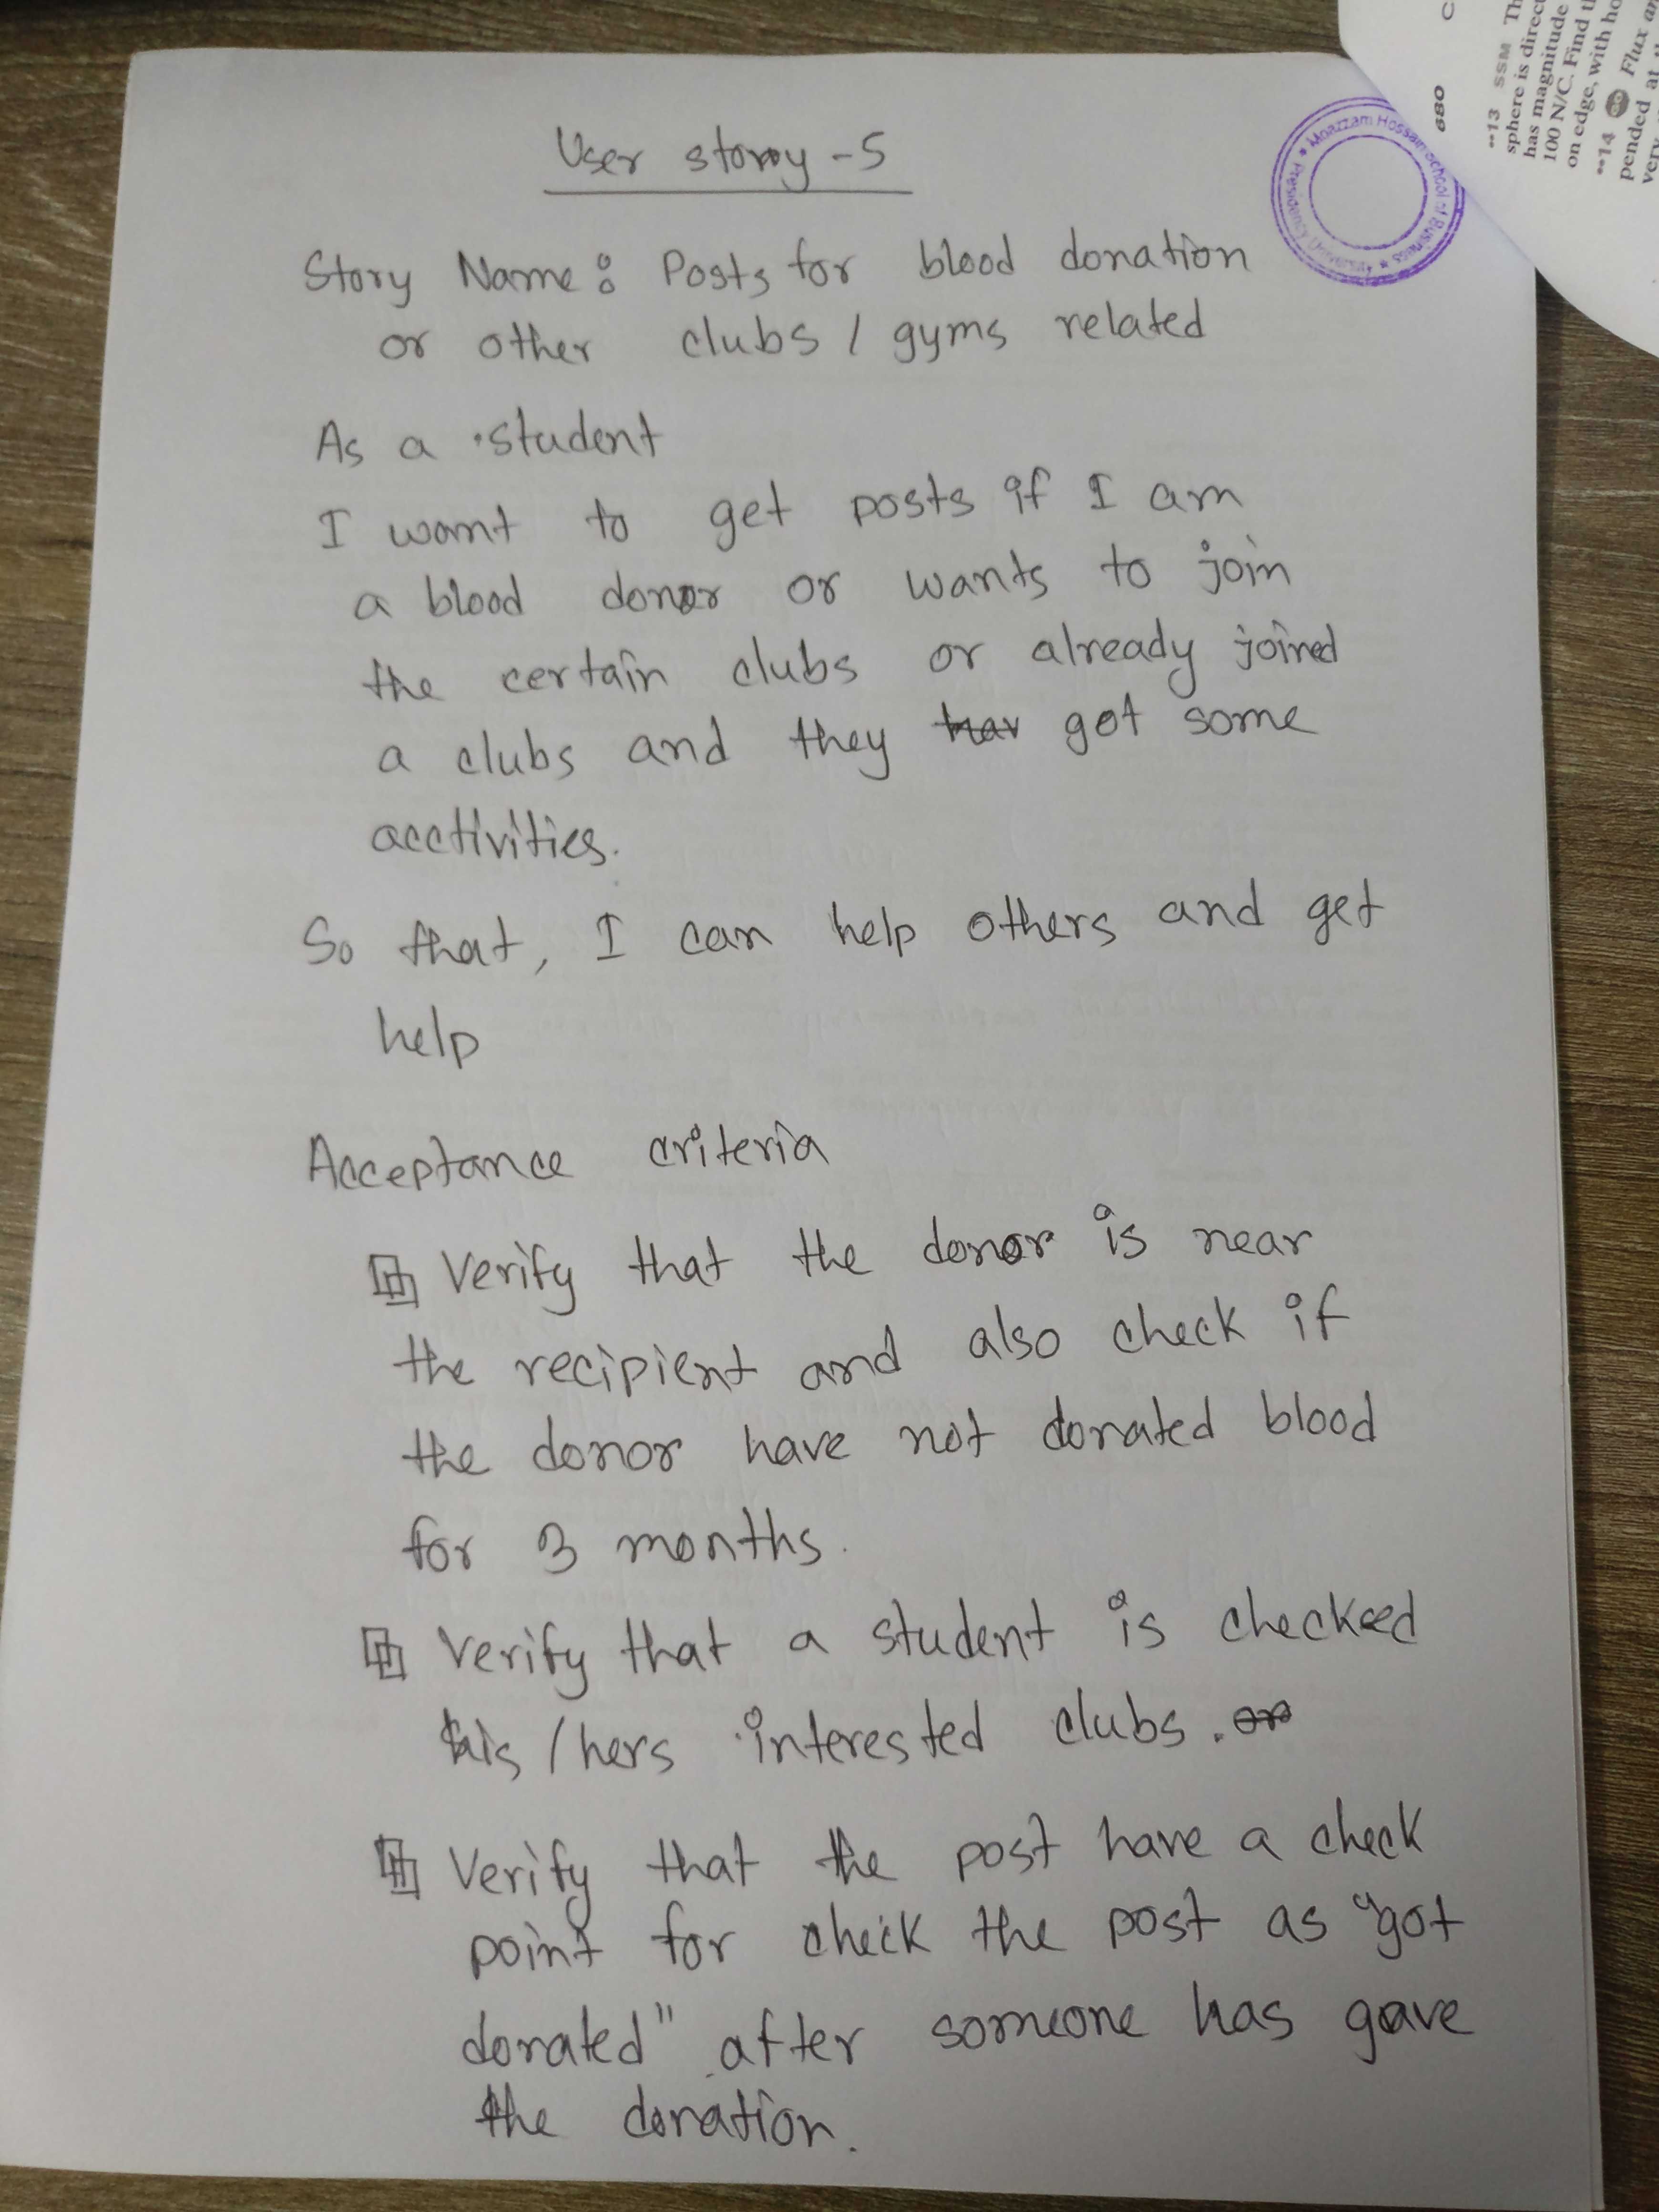 User story -5
Story Name: Posts for blood donation
or other clubs / gyms related
As a student
I want to get posts if I am
a blood donor or wants to join
the certain clubs or already joined
a clubs and they got some
acctivities.
So that, I can help others and get
help
Acceptance criteria
Verify that the donor is near
the recipient and also check if
the donor have not donated blood
for 3 months.
Verify that a student is checked
his / hers interested clubs. or
Verify that the post have a check
point for check the post as "got
donated" after someone has gave
the donation.
Moazzam Hossain School of Business * Presidency University *
680
**13 SSM Th
sphere is direct
has magnitude
100 N/C. Find t
on edge, with ho
**14 Flux an
pended at
very